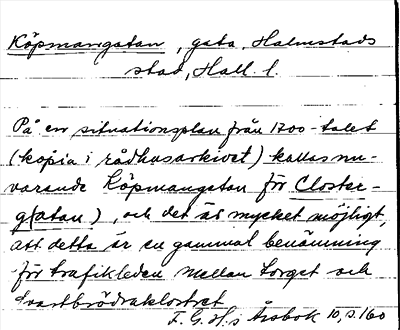 Köpmangatan, gata, Halmstads
stad, Hall. l.
På en situationsplan från 1700-talet
(kopia i rådhusarkivet) kallas nu-
varande Köpmangatan för Closter-
g(atan), och det är mycket möjligt,
att detta är en gammal benämning
för trafikleden mellan torget och
svartbrödraklostret
F. G. H:s Årsbok 10, s. 160